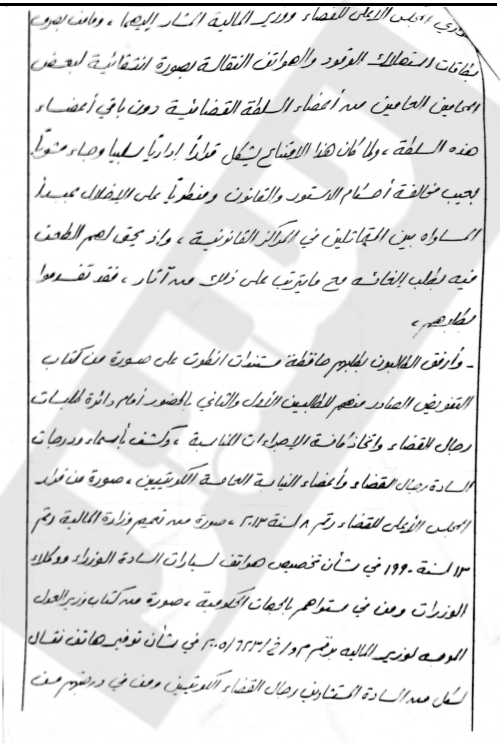 قراري المجلس الأعلى للقضاء ووزير المالية المشار إليهما ، وقامت بصرف
بطاقات استهلاك الوقود والهواتف النقالة بصورة انتقائية لبعض
المحامين العامين من أعضاء السلطة القضائية دون باقي أعضاء
هذه السلطة ، ولما كان هذا الامتناع يشكل قراراً إدارياً سلبيا وجاء مشوباً
بعيب مخالفة أحكام الدستور والقانون ومنطوياً على الإخلال بمبدأ
المساواه بين المتماثلين في المراكز القانونية ، وإذ يحق لهم الطعن
فيه بطلب إلغائه مع ما يترتب على ذلك من آثار ، فقد تقدموا
بطلبهم .
- وأرفق الطالبون بطلبهم حافظة مستندات انطوت على صورة من كتاب
التفويض الصادر منهم للطالبين الأول والثاني بالحضور أمام دائرة طلبات
رجال القضاء واتخاذ كافة الإجراءات المناسبة ، وكشف بأسماء ودرجات
السادة رجال القضاء وأعضاء النيابة العامة الكويتيين ، صورة من قرار
المجلس الأعلى للقضاء رقم ٨ لسنة ٢٠١٣ ، صورة من تعميم وزارة المالية رقم
١٣ لسنة ١٩٩٠ في شأن تخصيص هواتف لسيارات السادة الوزراء ووكلاء
الوزرات ومن في مستواهم بالجهات الحكومية ، صورة من كتاب وزير العدل
الموجه لوزير المالية برقم في شأن توفير هاتف نقال
لكل من السادة المستشارين رجال القضاء الكويتيين ومن في درجتهم من